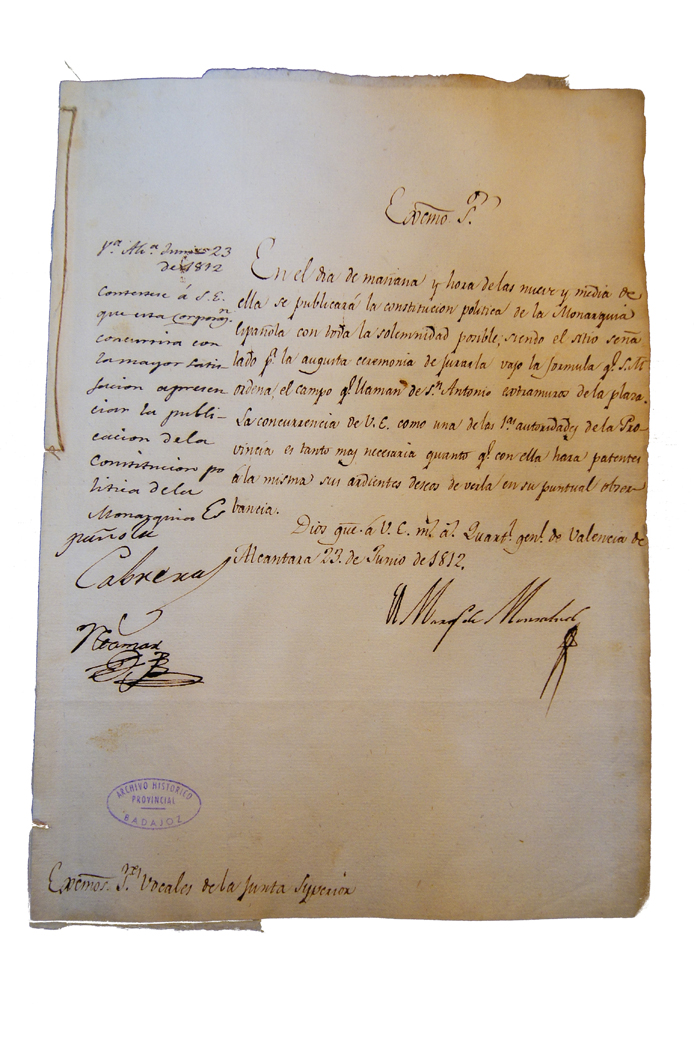 Excmo. Sr.
Va. Alca. Junio 23
de 1812
Contestese á S.E.
que esta Corporon.
concurrira con
la mayor satis
faccion a presen
ciar la publi-
cacion de la
Constitucion po
litica de la
Monarquia Es
pañola
Cabrera
En el dia de mañana y hora de las nueve y media de
ella se publicará la constitucion politica de la Monarquia
Española con toda la solemnidad posible; siendo el sitio seña
lado pa. la augusta ceremonia de jurarla vajo la formula qe. S.M.
ordena, el campo qe. llaman de Sn. Antonio extramuros de la plaza.
La concurrencia de V.E. como una de las 1as. autoridades de la Pro-
vincia es tanto mas necesaria quanto qe. con ella hara patentes
á la misma sus ardientes deseos de verla en su puntual obser-
bancia.
Dios gue. á V.E. ms. as. Quartl. genl. de Valencia de
Alcantara 23. de Junio de 1812.
El Marqs. de Monsalud
ARCHIVO HISTORICO
PROVINCIAL
BADAJOZ
Excmos. Sres. Vocales de la Junta Superior